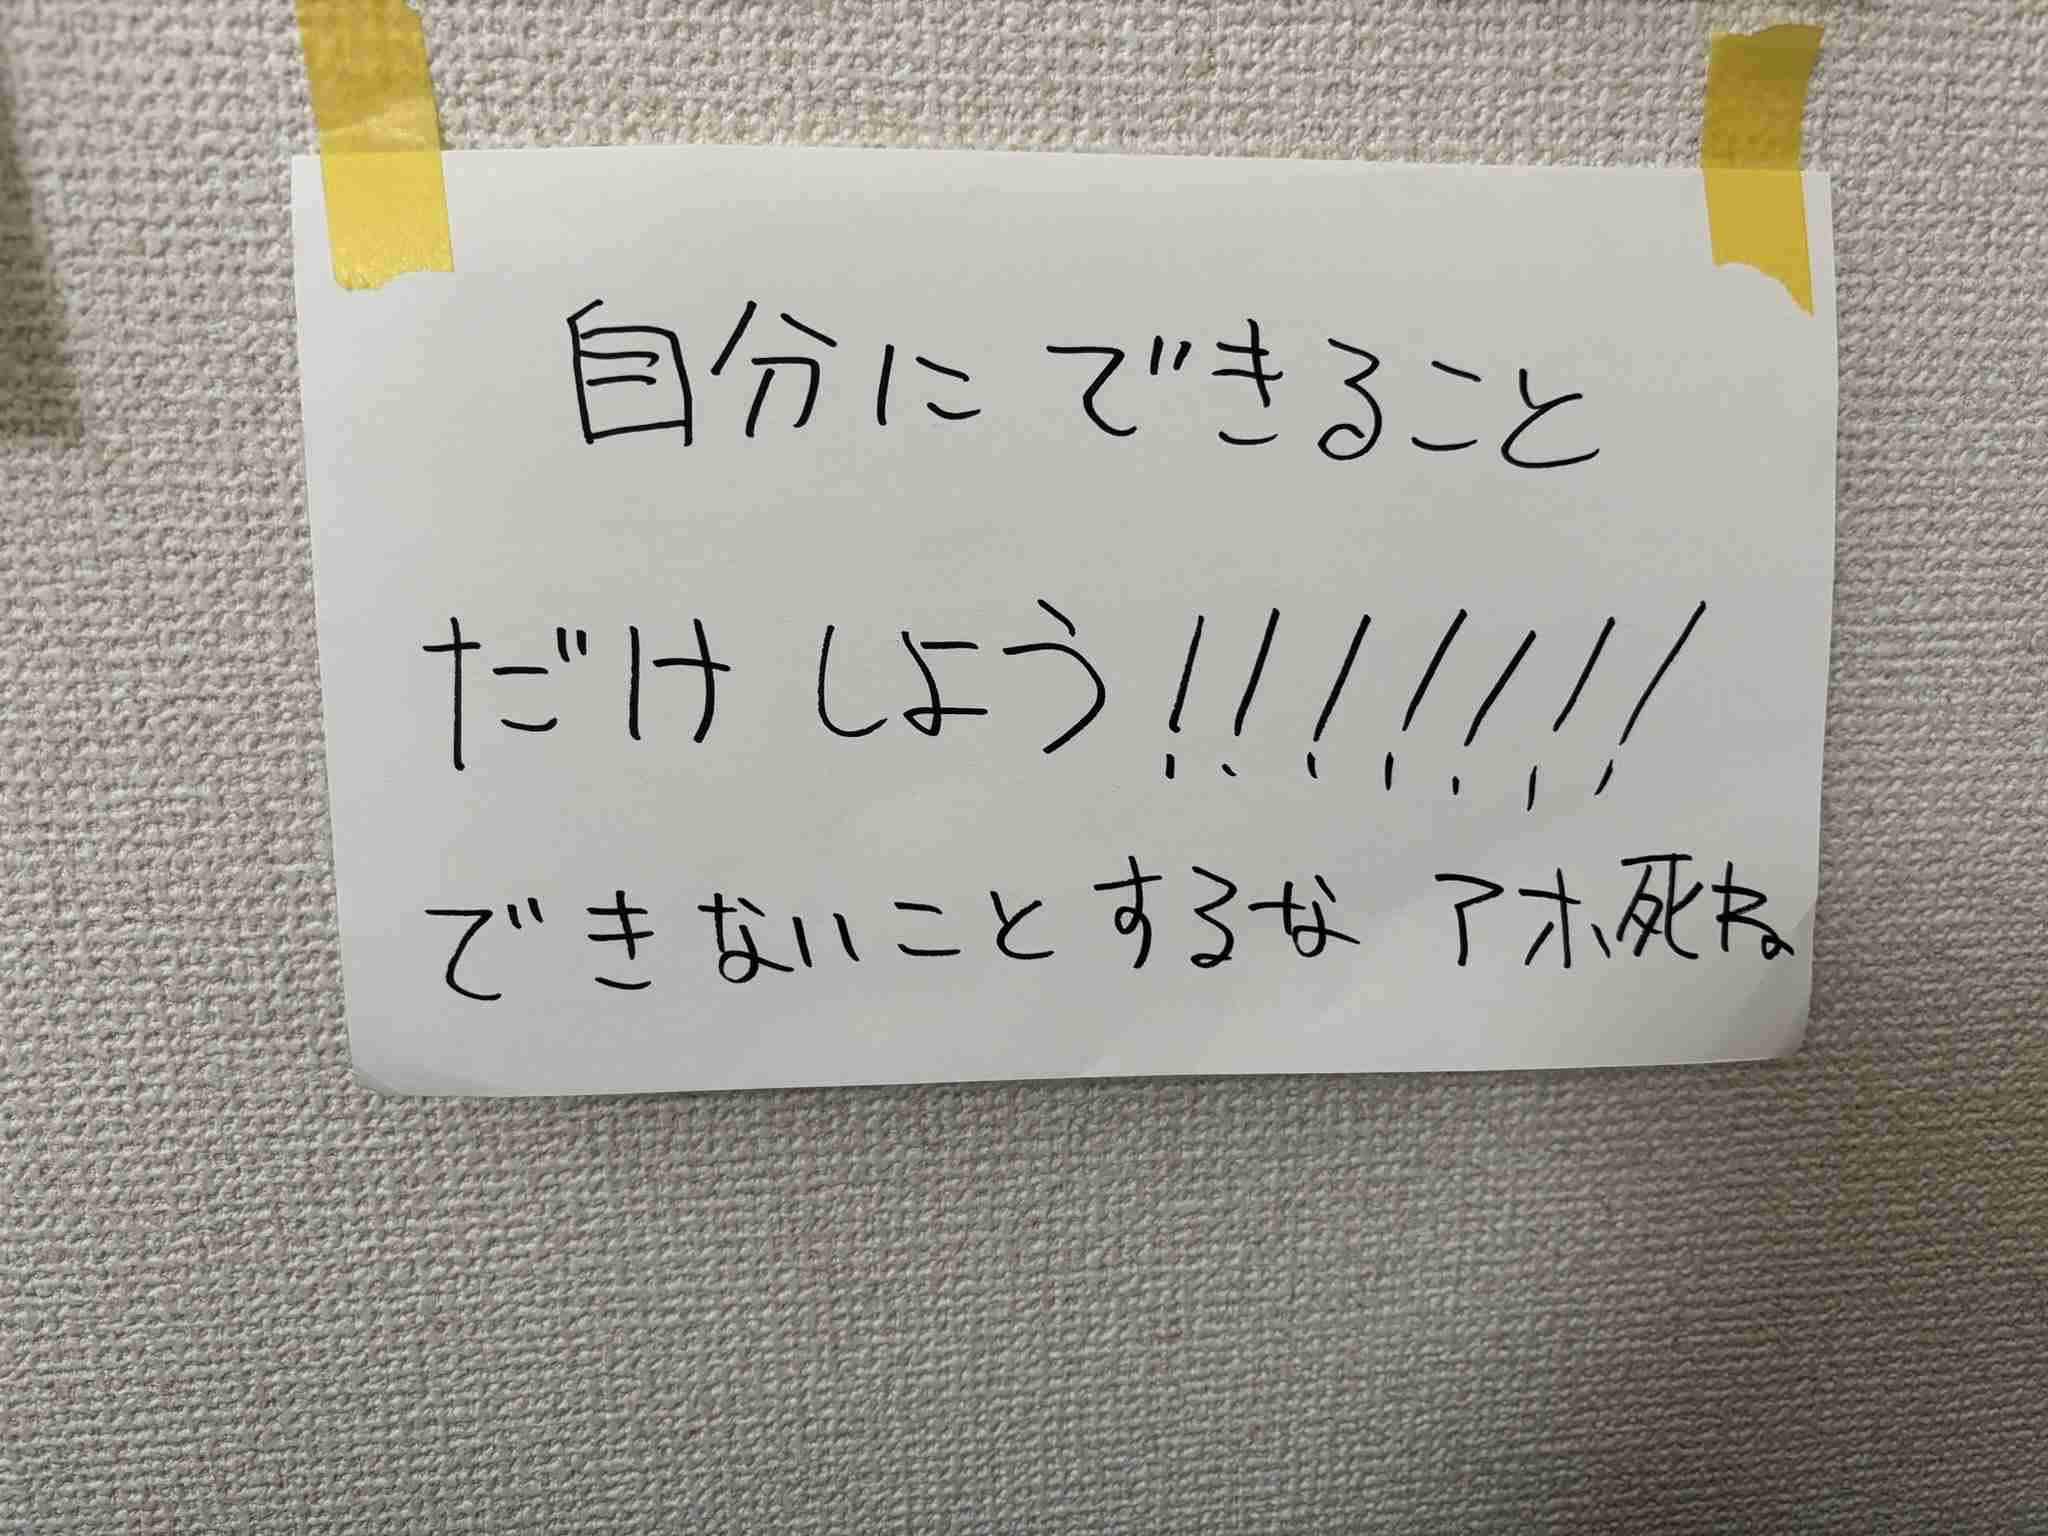 自分にできること
だけしよう!!!!!!!
できないことするな アホ死ね